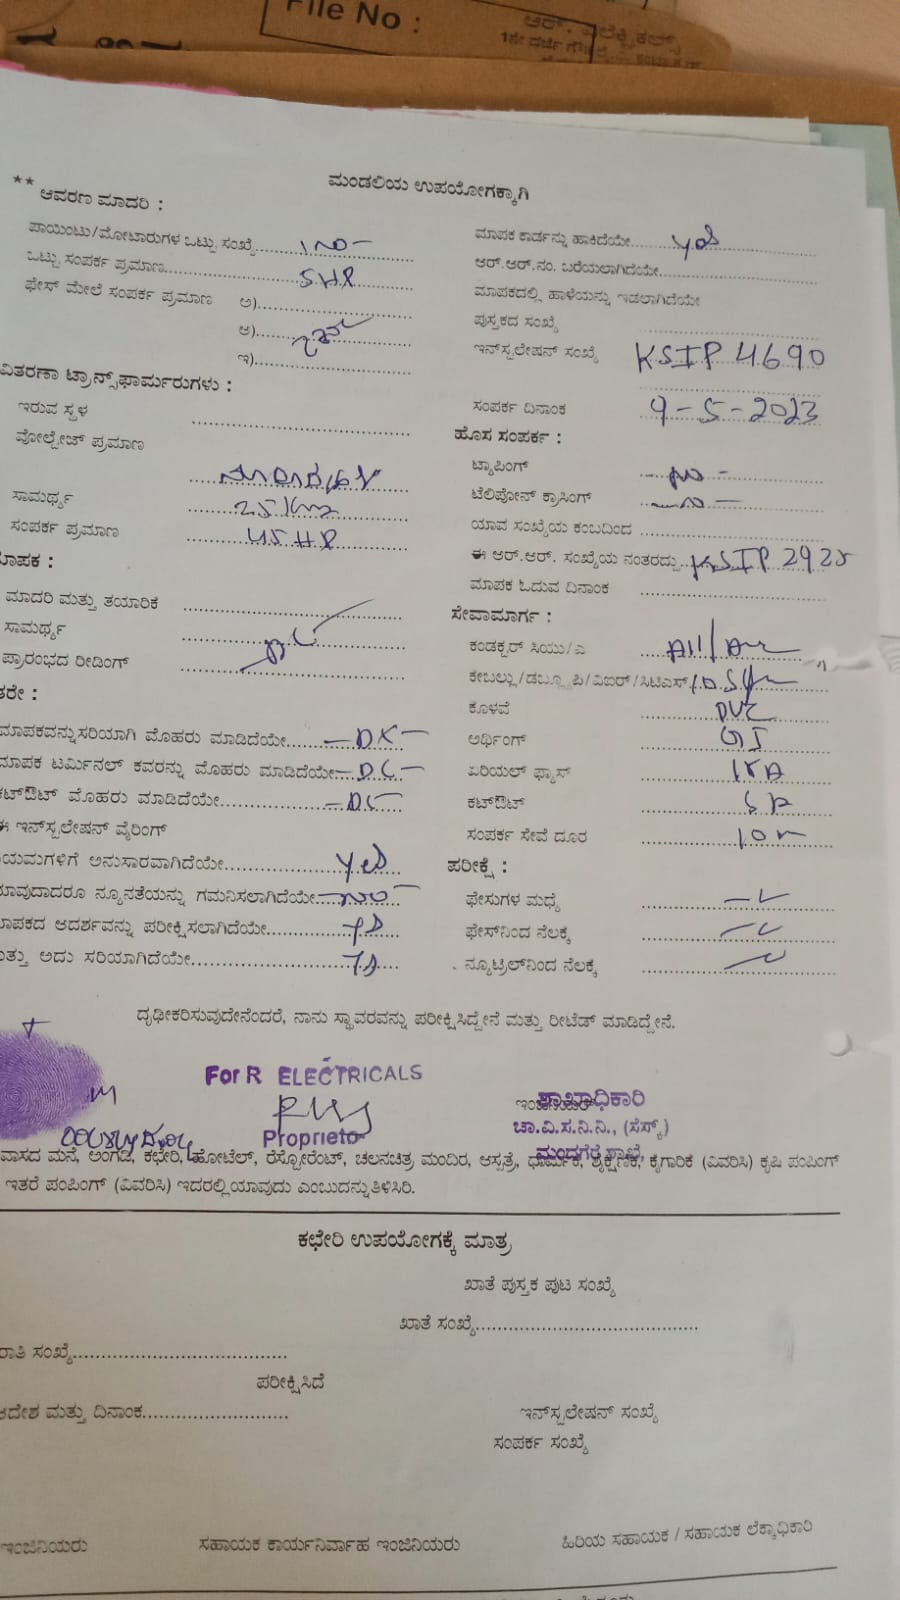 File No :
ಮಂಡಲಿಯ ಉಪಯೋಗಕ್ಕಾಗಿ
** ಆವರಣ ಮಾದರಿ :
ಪಾಯಿಂಟು/ಮೋಟಾರುಗಳ ಒಟ್ಟು ಸಂಖ್ಯೆ..........1 NO -
ಒಟ್ಟು ಸಂಪರ್ಕ ಪ್ರಮಾಣ..........5 HP
ಫೇಸ್ ಮೇಲೆ ಸಂಪರ್ಕ ಪ್ರಮಾಣ ಅ)..........
ಆ)..........
ಇ)..........
ವಿತರಣಾ ಟ್ರಾನ್ಸ್‌ಫಾರ್ಮರುಗಳು :
ಇರುವ ಸ್ಥಳ ..........
ವೋಲ್ಟೇಜ್ ಪ್ರಮಾಣ
ಸಾಮರ್ಥ್ಯ ..........25 KVA
ಸಂಪರ್ಕ ಪ್ರಮಾಣ ..........45 HP
ಮಾಪಕ :
ಮಾದರಿ ಮತ್ತು ತಯಾರಿಕೆ ..........
ಸಾಮರ್ಥ್ಯ ..........DC
ಪ್ರಾರಂಭದ ರೀಡಿಂಗ್ ..........
ತರೇ :
ಮಾಪಕವನ್ನು ಸರಿಯಾಗಿ ಮೊಹರು ಮಾಡಿದೆಯೇ..........
ಮಾಪಕ ಟರ್ಮಿನಲ್ ಕವರನ್ನು ಮೊಹರು ಮಾಡಿದೆಯೇ....- DC -
ಕಟ್‌ಔಟ್ ಮೊಹರು ಮಾಡಿದೆಯೇ..........- DC -
ಈ ಇನ್‌ಸ್ಟಲೇಷನ್ ವೈರಿಂಗ್
ಯಮಗಳಿಗೆ ಅನುಸಾರವಾಗಿದೆಯೇ..........Yes
ಯಾವುದಾದರೂ ನ್ಯೂನತೆಯನ್ನು ಗಮನಿಸಲಾಗಿದೆಯೇ..........
ಮಾಪಕದ ಆದರ್ಶವನ್ನು ಪರೀಕ್ಷಿಸಲಾಗಿದೆಯೇ..........
ಮತ್ತು ಅದು ಸರಿಯಾಗಿದೆಯೇ..........
ಮಾಪಕ ಕಾರ್ಡನ್ನು ಹಾಕಿದೆಯೇ..........yes
ಆರ್.ಆರ್.ನಂ. ಬರೆಯಲಾಗಿದೆಯೇ..........
ಮಾಪಕದಲ್ಲಿ ಹಾಳೆಯನ್ನು ಇಡಲಾಗಿದೆಯೇ
ಪುಸ್ತಕದ ಸಂಖ್ಯೆ ..........
ಇನ್‌ಸ್ಟಲೇಷನ್ ಸಂಖ್ಯೆ KSIP 4690
ಸಂಪರ್ಕ ದಿನಾಂಕ 9-5-2023
ಹೊಸ ಸಂಪರ್ಕ :
ಟ್ಯಾಪಿಂಗ್ - no -
ಟೆಲಿಫೋನ್ ಕ್ರಾಸಿಂಗ್ - no -
ಯಾವ ಸಂಖ್ಯೆಯ ಕಂಬದಿಂದ ..........
ಈ ಆರ್.ಆರ್. ಸಂಖ್ಯೆಯ ನಂತರದ್ದು..KSIP 2925
ಮಾಪಕ ಓದುವ ದಿನಾಂಕ ..........
ಸೇವಾಮಾರ್ಗ :
ಕಂಡಕ್ಟರ್ ಸಿಯು/ಎ
ಕೇಬಲ್ಲು/ಡಬ್ಲ್ಯೂಪಿ/ವಿಐಆರ್/ಸಿಟಿಎಸ್
ಕೊಳವೆ PVC
ಅರ್ಥಿಂಗ್ GI
ಏರಿಯಲ್ ಫ್ಯೂಸ್ 15A
ಕಟ್‌ಔಟ್
ಸಂಪರ್ಕ ಸೇವೆ ದೂರ 10 m
ಪರೀಕ್ಷೆ :
ಫೇಸುಗಳ ಮಧ್ಯೆ
ಫೇಸ್‌ನಿಂದ ನೆಲಕ್ಕೆ
ನ್ಯೂಟ್ರಿಲ್‌ನಿಂದ ನೆಲಕ್ಕೆ
ದೃಢೀಕರಿಸುವುದೇನೆಂದರೆ, ನಾನು ಸ್ಥಾವರವನ್ನು ಪರೀಕ್ಷಿಸಿದ್ದೇನೆ ಮತ್ತು ರೀಟೆಡ್ ಮಾಡಿದ್ದೇನೆ.
For R ELECTRICALS
Proprietor
ಇಂಜಿನಿಯರ್
ಶಾಖಾಧಿಕಾರಿ
ಚಾ.ವಿ.ಸ.ನಿ.ನಿ., (ಸೆಸ್ಕ್)
ಮಂದಗೆರೆ ಶಾಖೆ,
ವಾಸದ ಮನೆ, ಅಂಗಡಿ, ಕಛೇರಿ, ಹೋಟೆಲ್, ರೆಸ್ಟೋರೆಂಟ್, ಚಲನಚಿತ್ರ ಮಂದಿರ, ಆಸ್ಪತ್ರೆ, ಧಾರ್ಮಿಕ, ಶೈಕ್ಷಣಿಕ, ಕೈಗಾರಿಕೆ (ವಿವರಿಸಿ) ಕೃಷಿ ಪಂಪಿಂಗ್
ಇತರೆ ಪಂಪಿಂಗ್ (ವಿವರಿಸಿ) ಇದರಲ್ಲಿ ಯಾವುದು ಎಂಬುದನ್ನು ತಿಳಿಸಿರಿ.
ಕಛೇರಿ ಉಪಯೋಗಕ್ಕೆ ಮಾತ್ರ
ಖಾತೆ ಪುಸ್ತಕ ಪುಟ ಸಂಖ್ಯೆ
ಖಾತೆ ಸಂಖ್ಯೆ..........
ರಾತಿ ಸಂಖ್ಯೆ..........
ಪರೀಕ್ಷಿಸಿದೆ
ಆದೇಶ ಮತ್ತು ದಿನಾಂಕ..........
ಇನ್‌ಸ್ಟಲೇಷನ್ ಸಂಖ್ಯೆ
ಸಂಪರ್ಕ ಸಂಖ್ಯೆ
ಇಂಜಿನಿಯರು ಸಹಾಯಕ ಕಾರ್ಯನಿರ್ವಾಹ ಇಂಜಿನಿಯರು ಹಿರಿಯ ಸಹಾಯಕ / ಸಹಾಯಕ ಲೆಕ್ಕಾಧಿಕಾರಿ